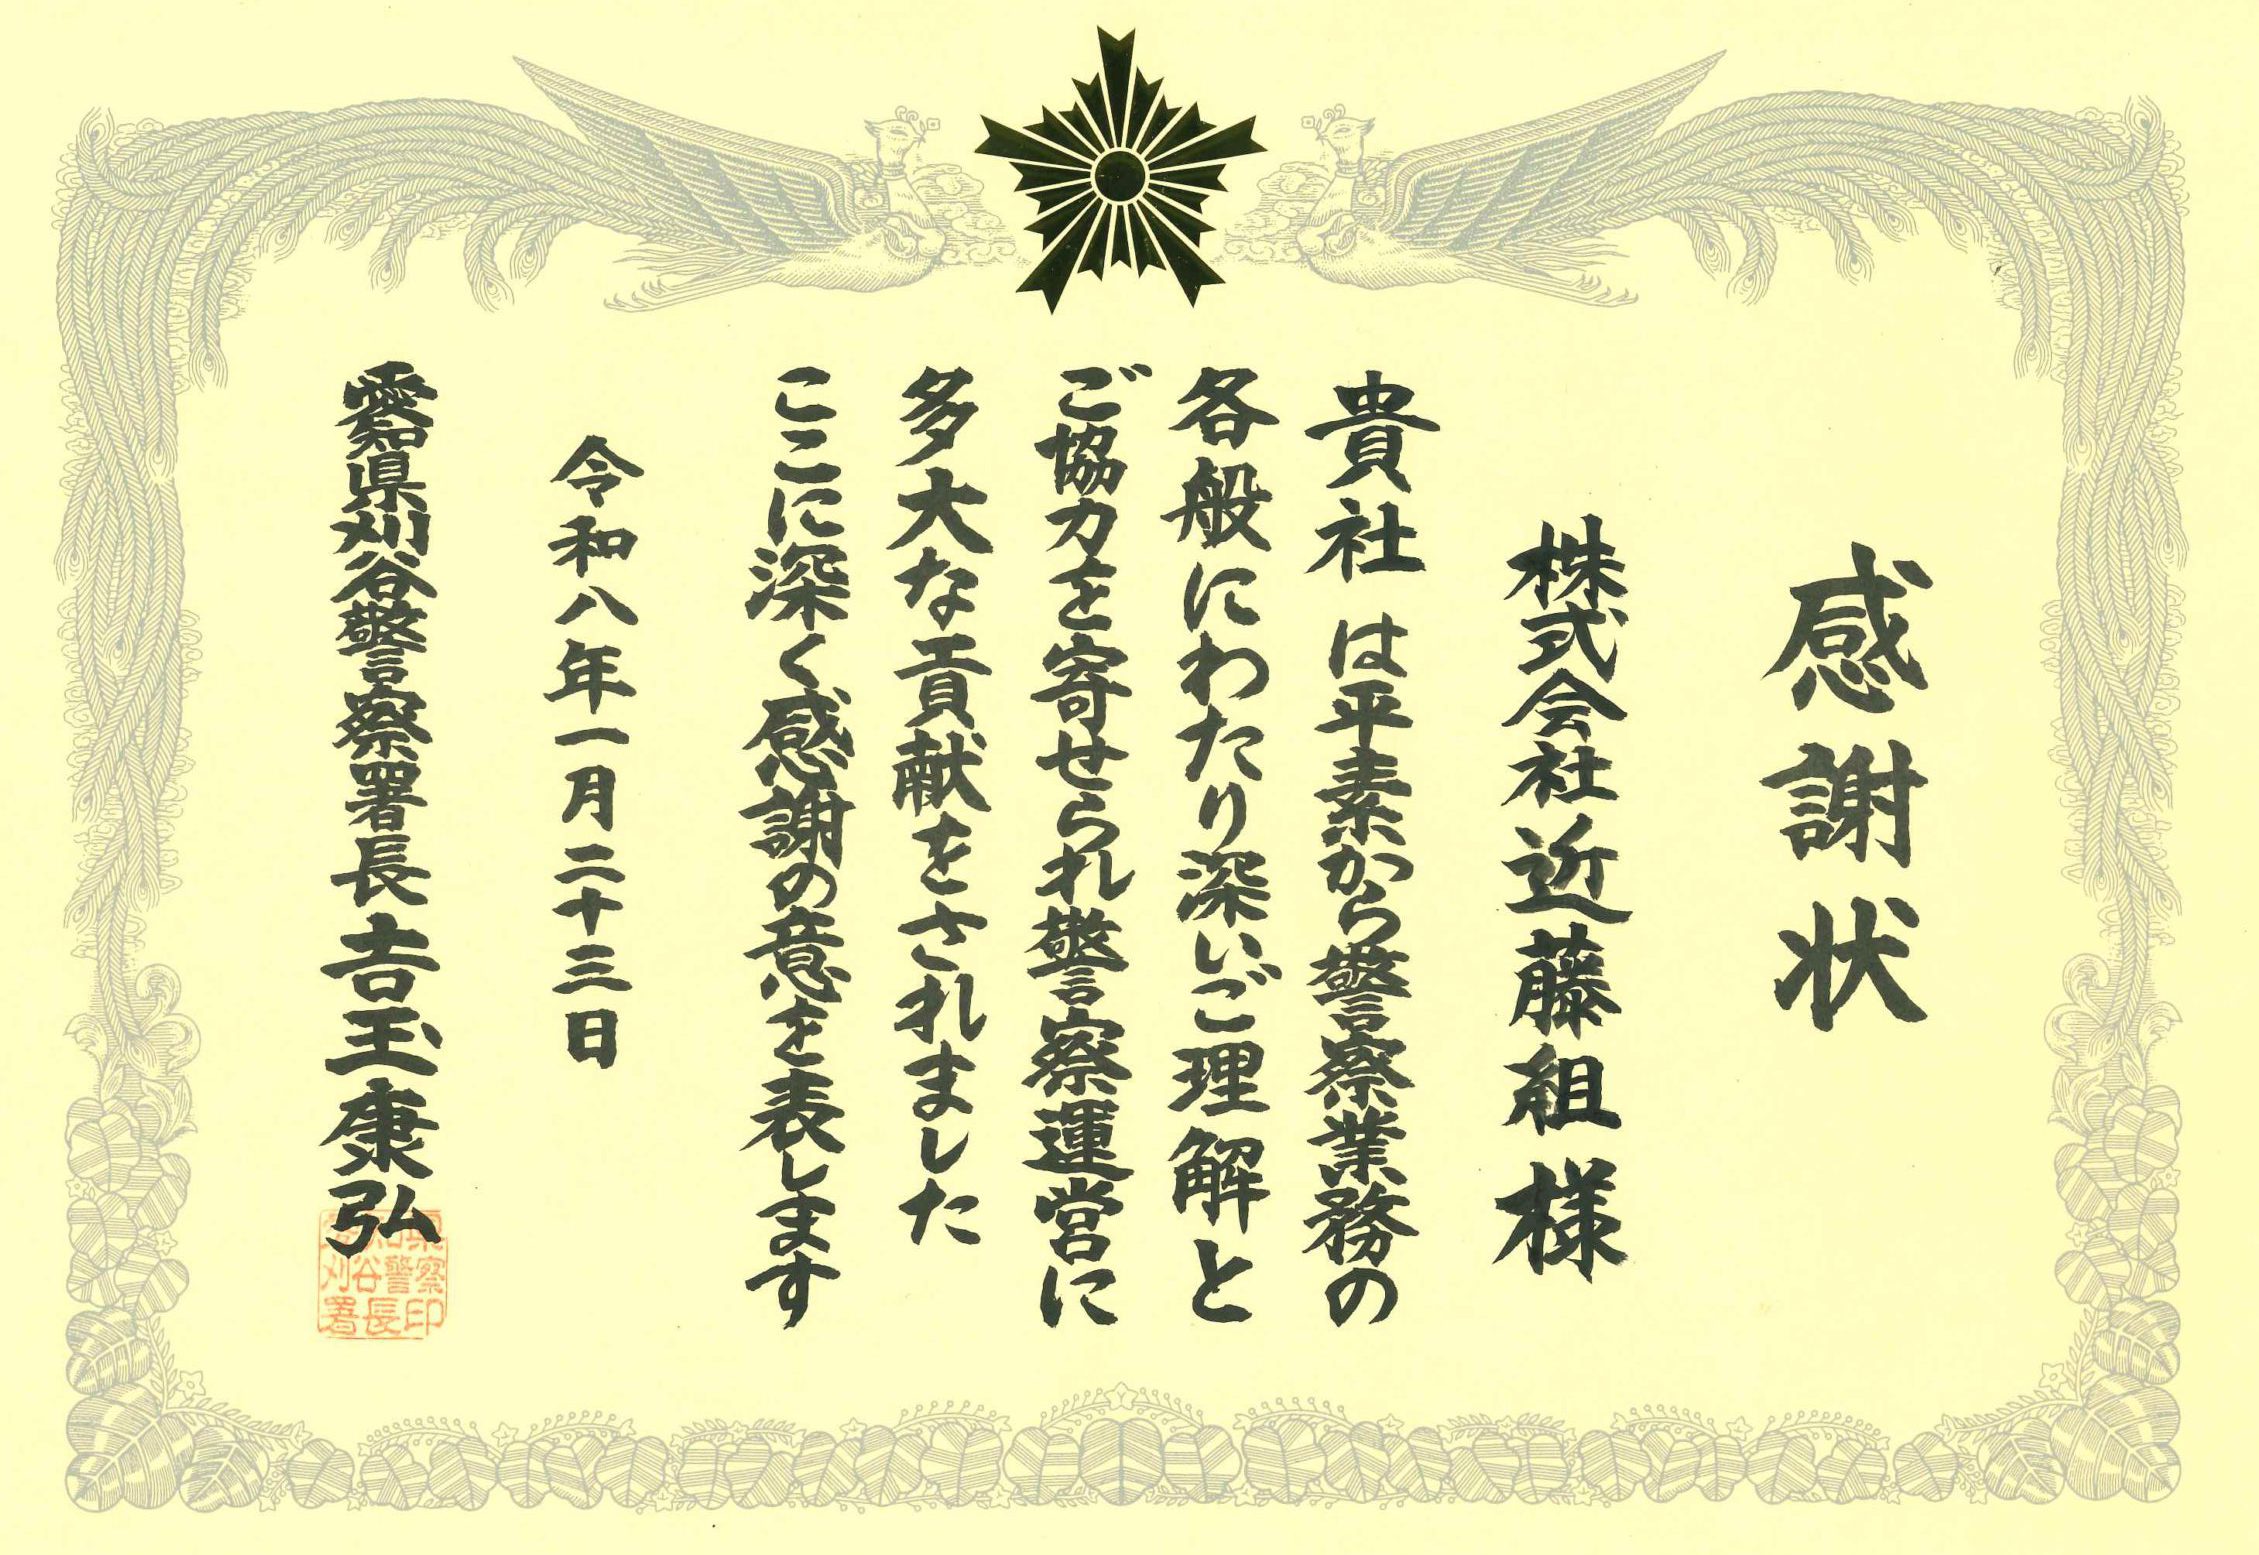 感謝状
株式会社近藤組様
貴社は平素から警察業務の
各般にわたり深いご理解と
ご協力を寄せられ警察運営に
多大な貢献をされました
ここに深く感謝の意を表します
令和八年一月二十三日
愛知県刈谷警察署長吉玉康弘
県察印
知警長
刈谷署